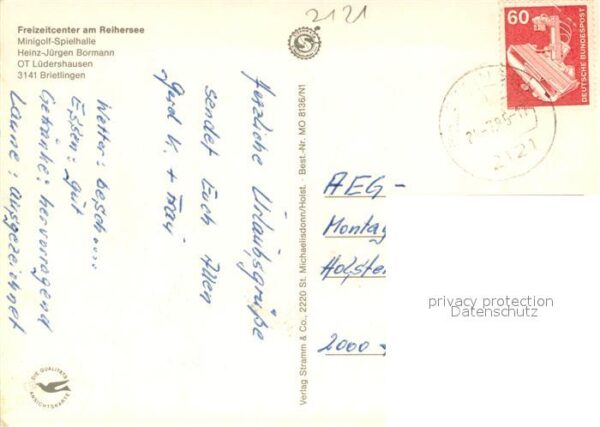 Freizeitcenter am Reihersee
Minigolf-Spielhalle
Heinz-Jürgen Bormann
OT Lüdershausen
3141 Brietlingen
2121
60
DEUTSCHE BUNDESPOST
2121
Herzliche Urlaubsgrüße
sendet Euch Allen
Gerd K. + Frau
Wetter: besch....
Essen: gut
Getränke: hervorragend
Laune: ausgezeichnet
Verlag Stramm & Co., 2220 St. Michaelisdonn/Holst. · Best.-Nr. MO 8136/N1
AEG-
Montag
Holstei
2000
privacy protection
Datenschutz
DIE QUALITÄTS
ANSICHTSKARTE